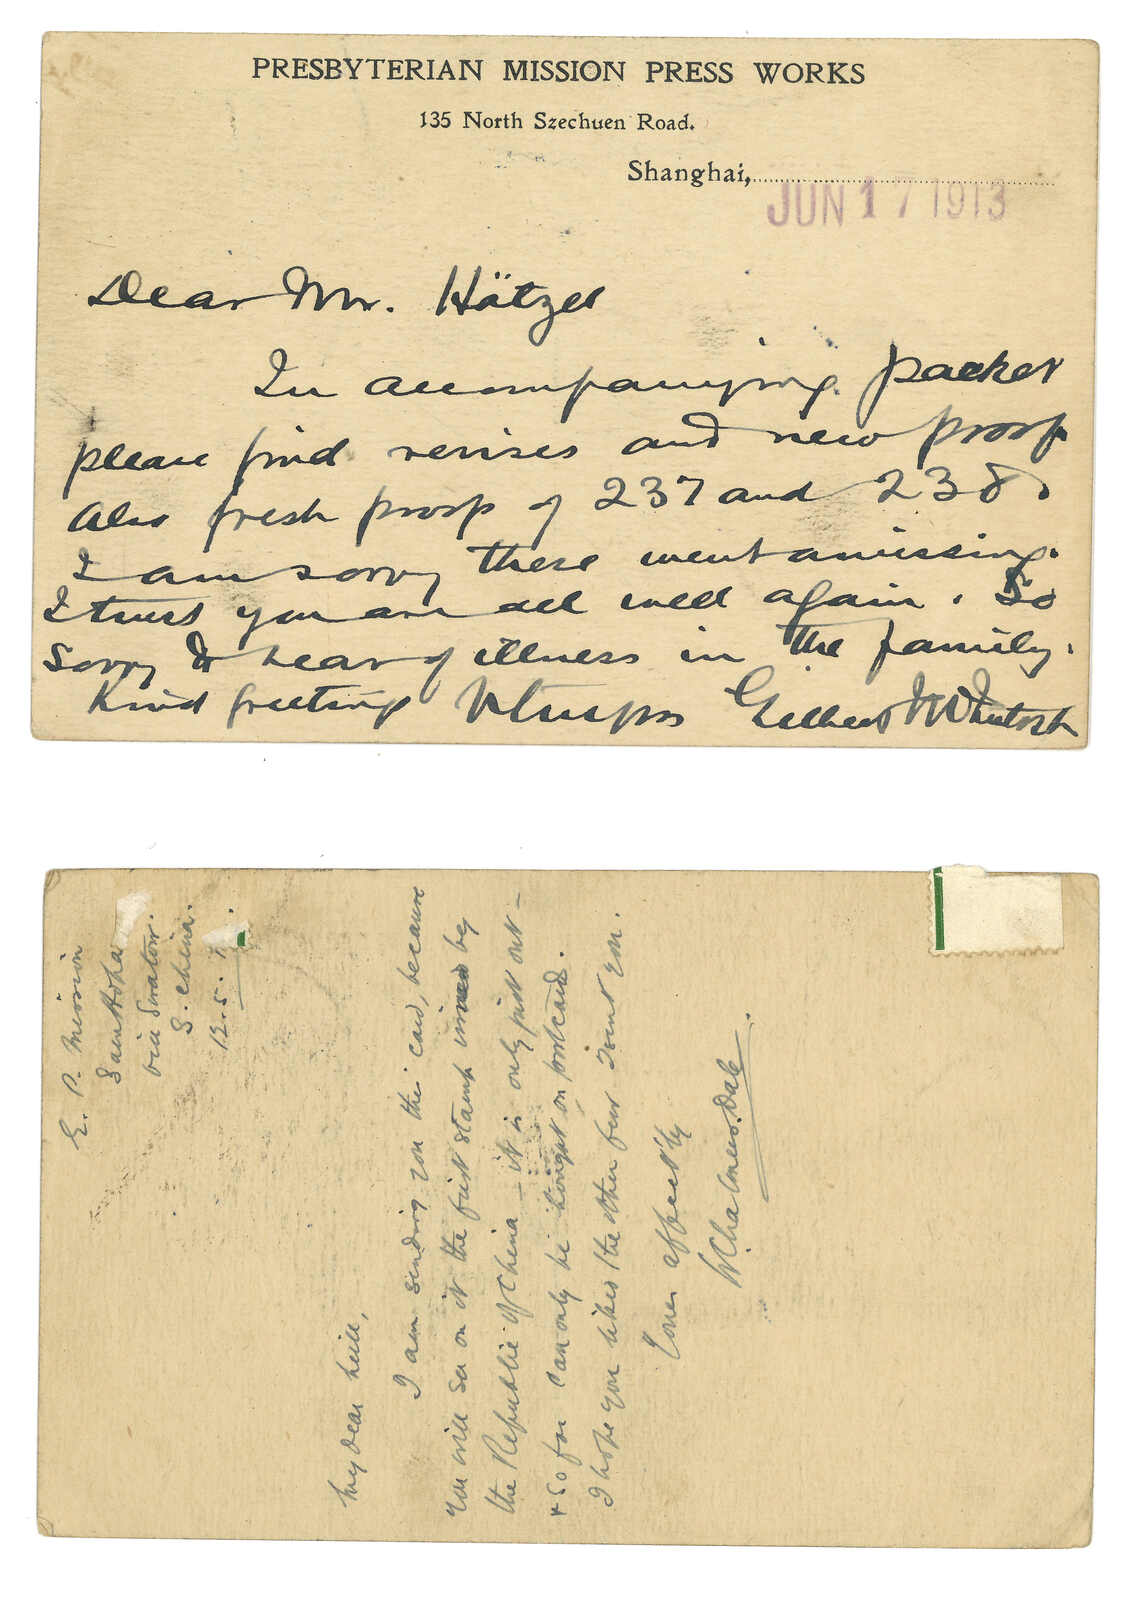 PRESBYTERIAN MISSION PRESS WORKS
135 North Szechuen Road.
Shanghai,
JUN 17 1913
Dear Mr. Hätzel
In accompanying packet
please find revises and new proof.
Also fresh proof of 237 and 238.
I am sorry these went amissing.
I trust you are all well again. So
sorry to hear of illness in the family.
Kind greetings Gilbert McIntosh
E. P. Mission
via Swatow.
S. China.
12.5.
My dear
I am sending you this card, because
you will see on it the first stamp issued by
the Republic of China – it is only just out –
& so far can only be bought on postcard.
I hope you liked the other few I sent you.
Your affect'ly
W. Chalmers Dale